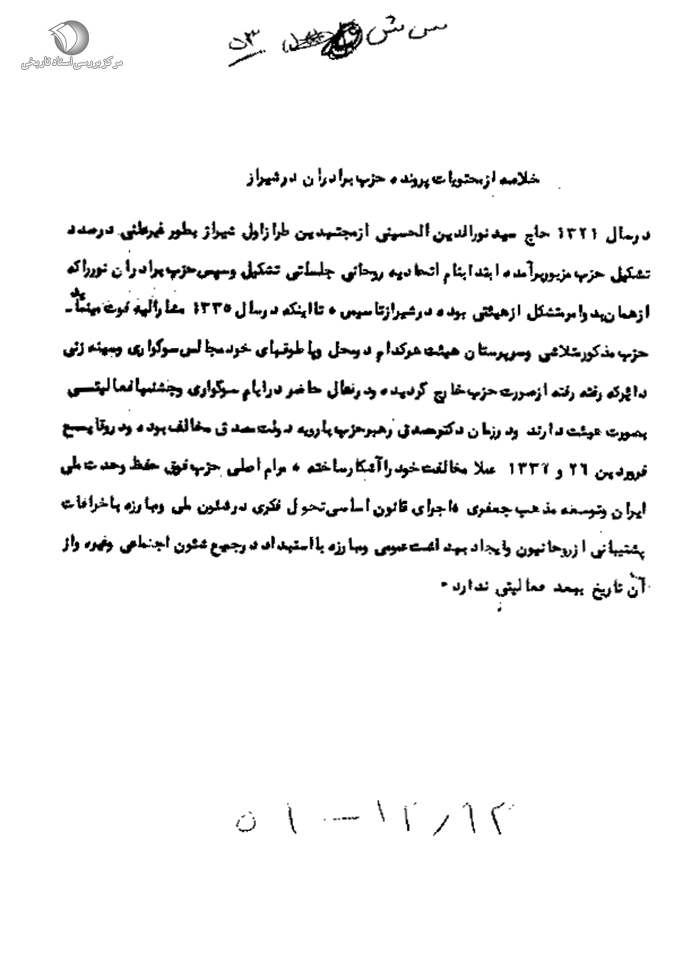 مرکز بررسی اسناد تاریخی
س ش
۵۳
خلاصه از محتویات پرونده حزب برادران در شیراز
در سال ۱۳۲۱ حاج سید نورالدین الحسینی از مجتهدین طراز اول شیراز بطور غیرعلنی در صدد
تشکیل حزب مزبور برآمده ابتدا بنام اتحادیه روحانی جلساتی تشکیل و سپس حزب برادران نور را که
از همان بدو امر متشکل از هیئتی بوده در شیراز تاسیس ۰ تا اینکه در سال ۱۳۳۵ مشارالیه فوت مینماید ـ
حزب مذکور متلاشی و سرپرستان هیئت هرکدام در محل و یا طوقهای خود مجالس سوگواری و سینه زنی
دائر که رفته رفته از صورت حزب خارج گردیده و در حال حاضر در ایام سوگواری و جشنها فعالیتی
بصورت هیئت دارند ودر زمان دکتر مصدق رهبر حزب با رویه دولت مصدق مخالف بوده و در وقایع
فروردین ۲۶ و ۱۳۳۲ عملا مخالفت خود را آشکار ساخته ۰ مرام اصلی حزب فوق حفظ وحدت ملی
ایران وتوسعه مذهب جعفری ۰ اجرای قانون اساسی تحول فکری در شئون ملی و مبارزه با خرافات
پشتیبانی از روحانیون و ایجاد بهداشت عمومی و مبارزه با استبداد در جمیع شئون اجتماعی وغیره و از
آن تاریخ ببعد فعالیتی ندارد ۰
۵۱ — ۱۲/۶۲